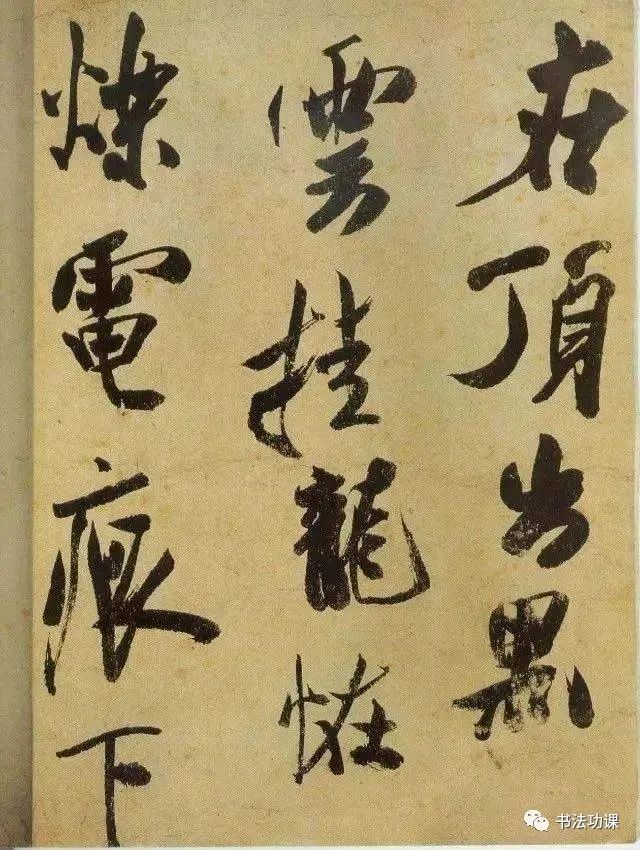 在頂出黑
雲挂龍恠
爍電痕下
书法功课